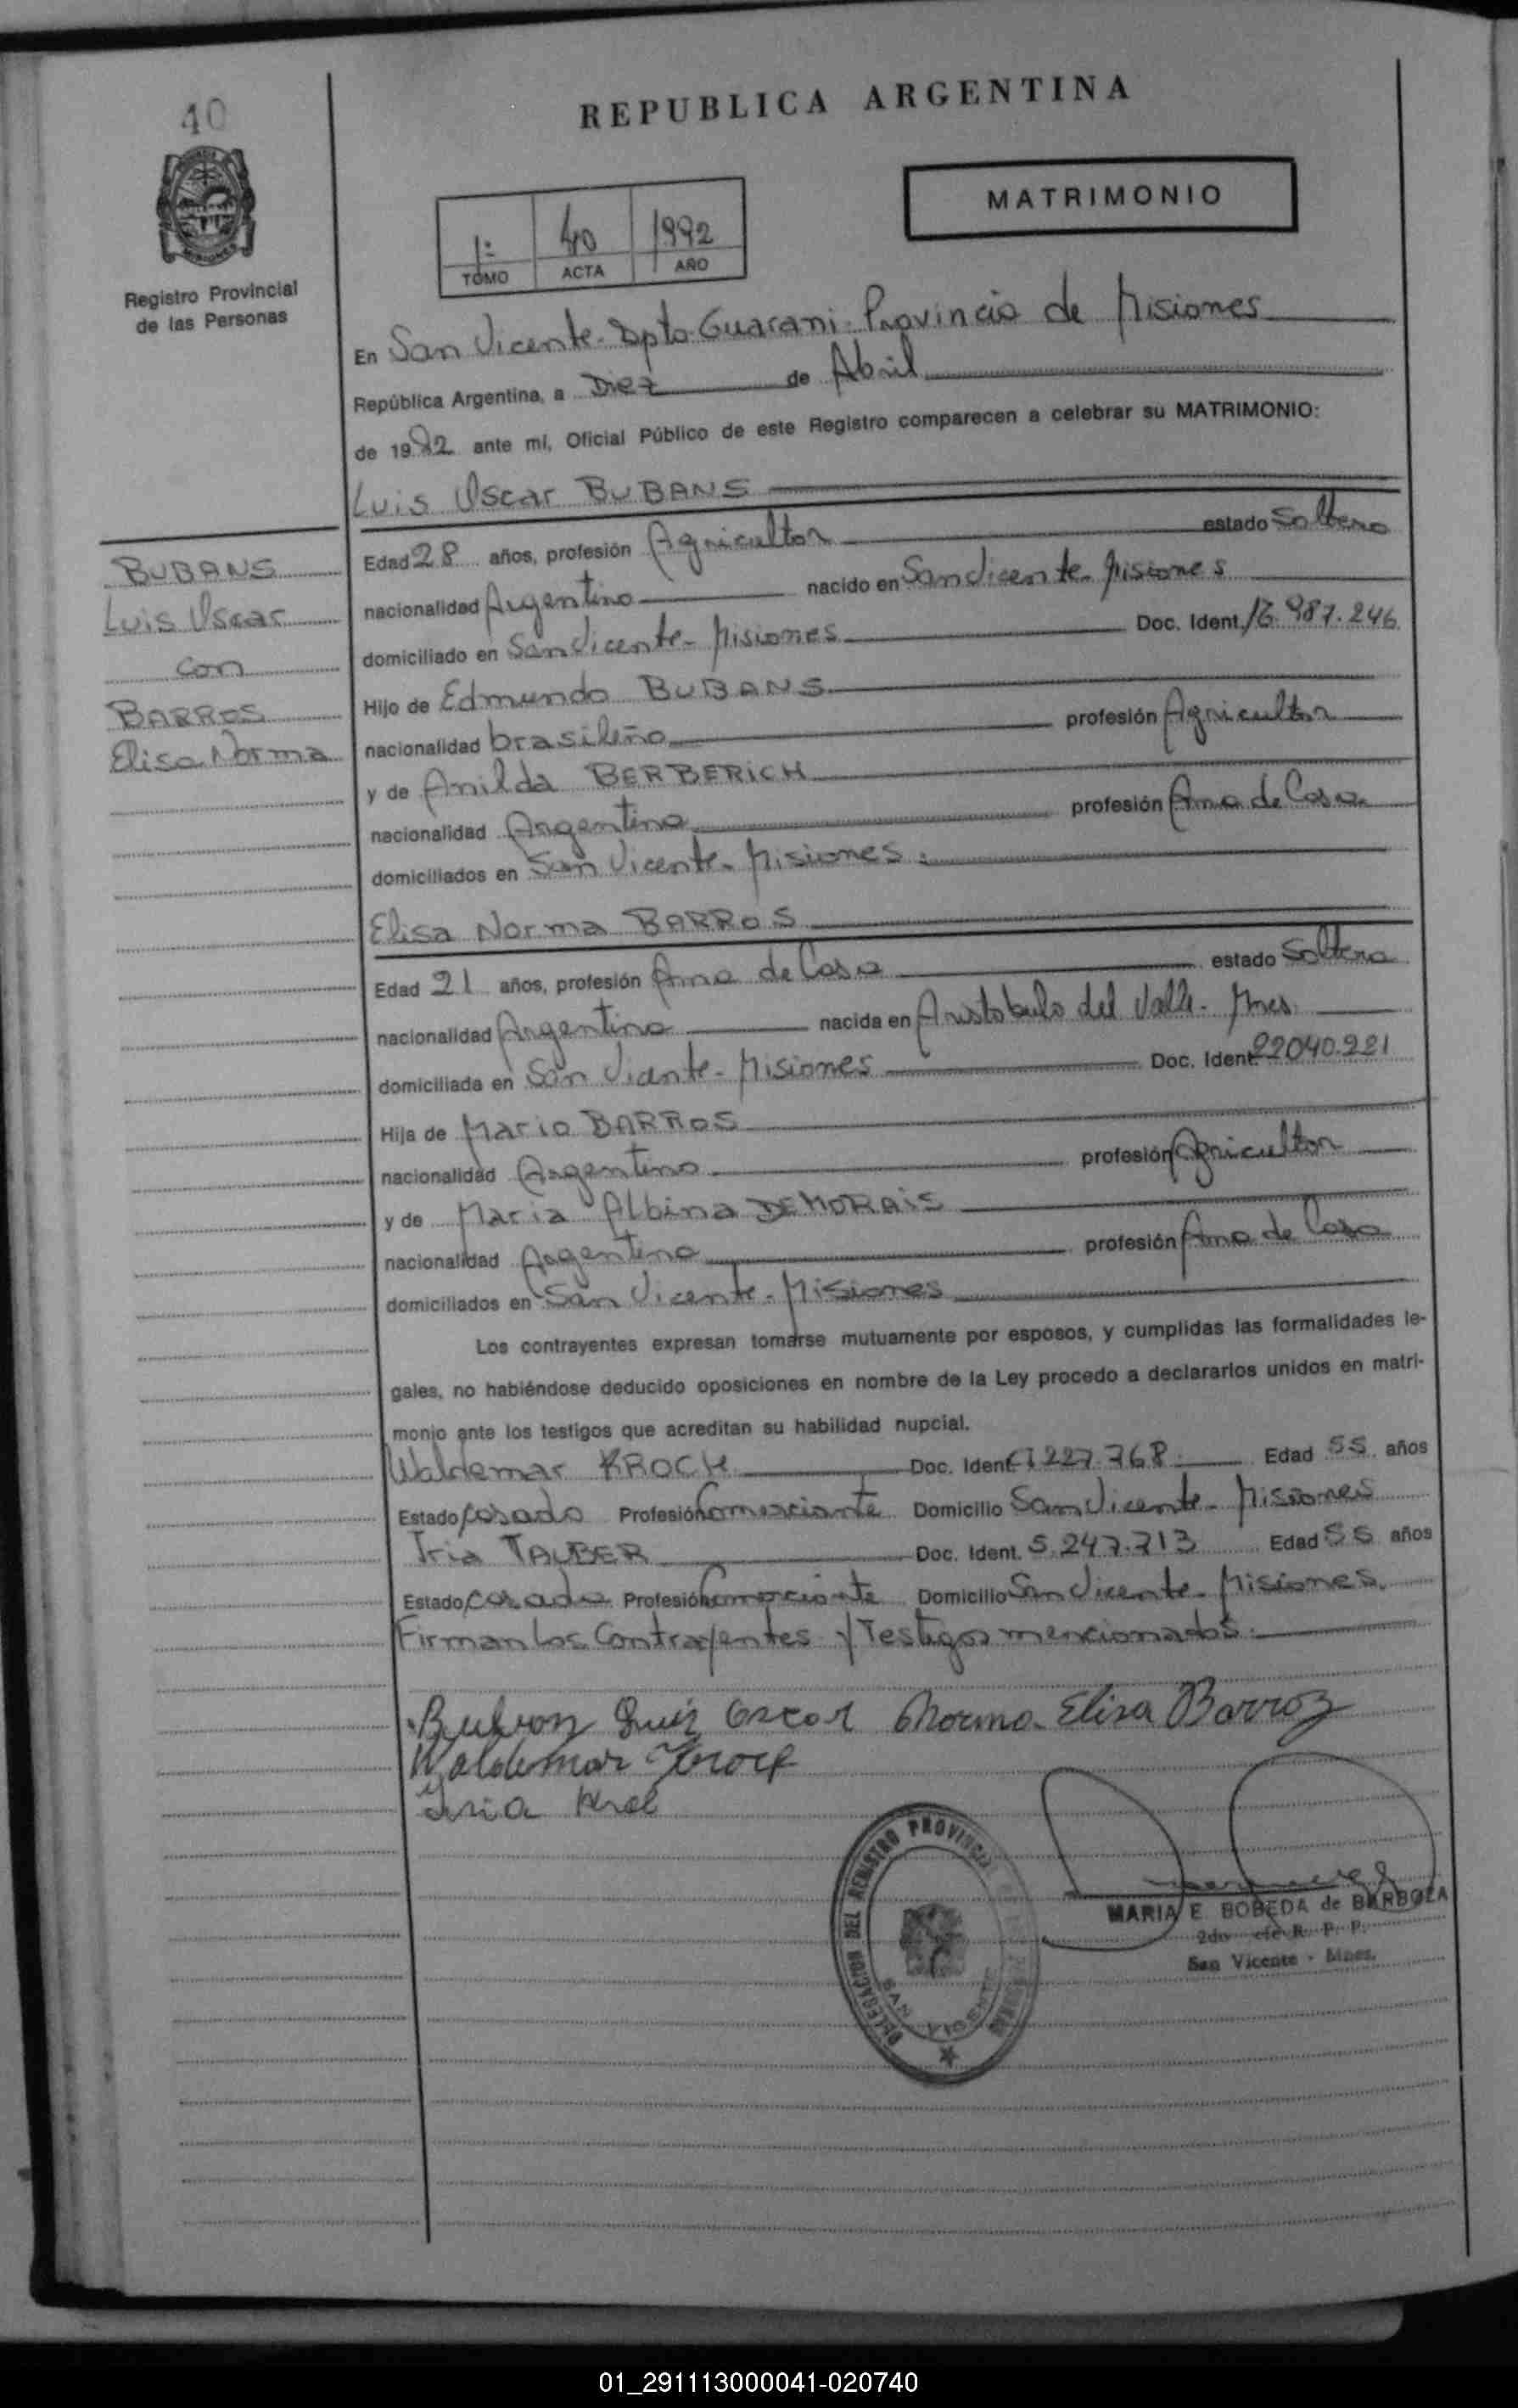 40
REPUBLICA ARGENTINA
MATRIMONIO
1: 40 1992
TOMO ACTA AÑO
Registro Provincial
de las Personas
En San Vicente - Dpto. Guarani - Provincia de Misiones
República Argentina, a Diez de Abril
de 1992 ante mí, Oficial Público de este Registro comparecen a celebrar su MATRIMONIO:
Luis Oscar BUBANS
BUBANS
Luis Oscar
con
BARROS
Elisa Norma
Edad 28 años, profesión Agricultor estado Soltero
nacionalidad Argentino nacido en San Vicente - Misiones
domiciliado en San Vicente - Misiones Doc. Ident. 16.987.246
Hijo de Edmundo BUBANS
nacionalidad brasileño profesión Agricultor
y de Anilda BERBERICH
nacionalidad Argentina profesión Ama de Casa
domiciliados en San Vicente - Misiones
Elisa Norma BARROS
Edad 21 años, profesión Ama de Casa estado Soltera
nacionalidad Argentina nacida en Aristobulo del Valle - Mnes.
domiciliada en San Vicente - Misiones Doc. Ident. 22040.221
Hija de Mario BARROS
nacionalidad Argentino profesión Agricultor
y de Maria Albina DEMORAIS
nacionalidad Argentina profesión Ama de Casa
domiciliados en San Vicente - Misiones
Los contrayentes expresan tomarse mutuamente por esposos, y cumplidas las formalidades le-
gales, no habiéndose deducido oposiciones en nombre de la Ley procedo a declararlos unidos en matri-
monio ante los testigos que acreditan su habilidad nupcial.
Waldemar KROCH Doc. Ident. 227.768 Edad 55 años
Estado casado Profesión Comerciante Domicilio San Vicente - Misiones
Iria TAUBER Doc. Ident. 5.247.713 Edad 55 años
Estado casada Profesión Comerciante Domicilio San Vicente - Misiones
Firman los Contrayentes y Testigos mencionados.
Luiz Oscar Norma Elisa Barroz
Waldemar
Iria
DELEGACION DEL REGISTRO PROVINCIAL
SAN VICENTE
MARIA E. BOBEDA de BARBOZA
2do R. P. P.
San Vicente - Mnes.
01_291113000041-020740